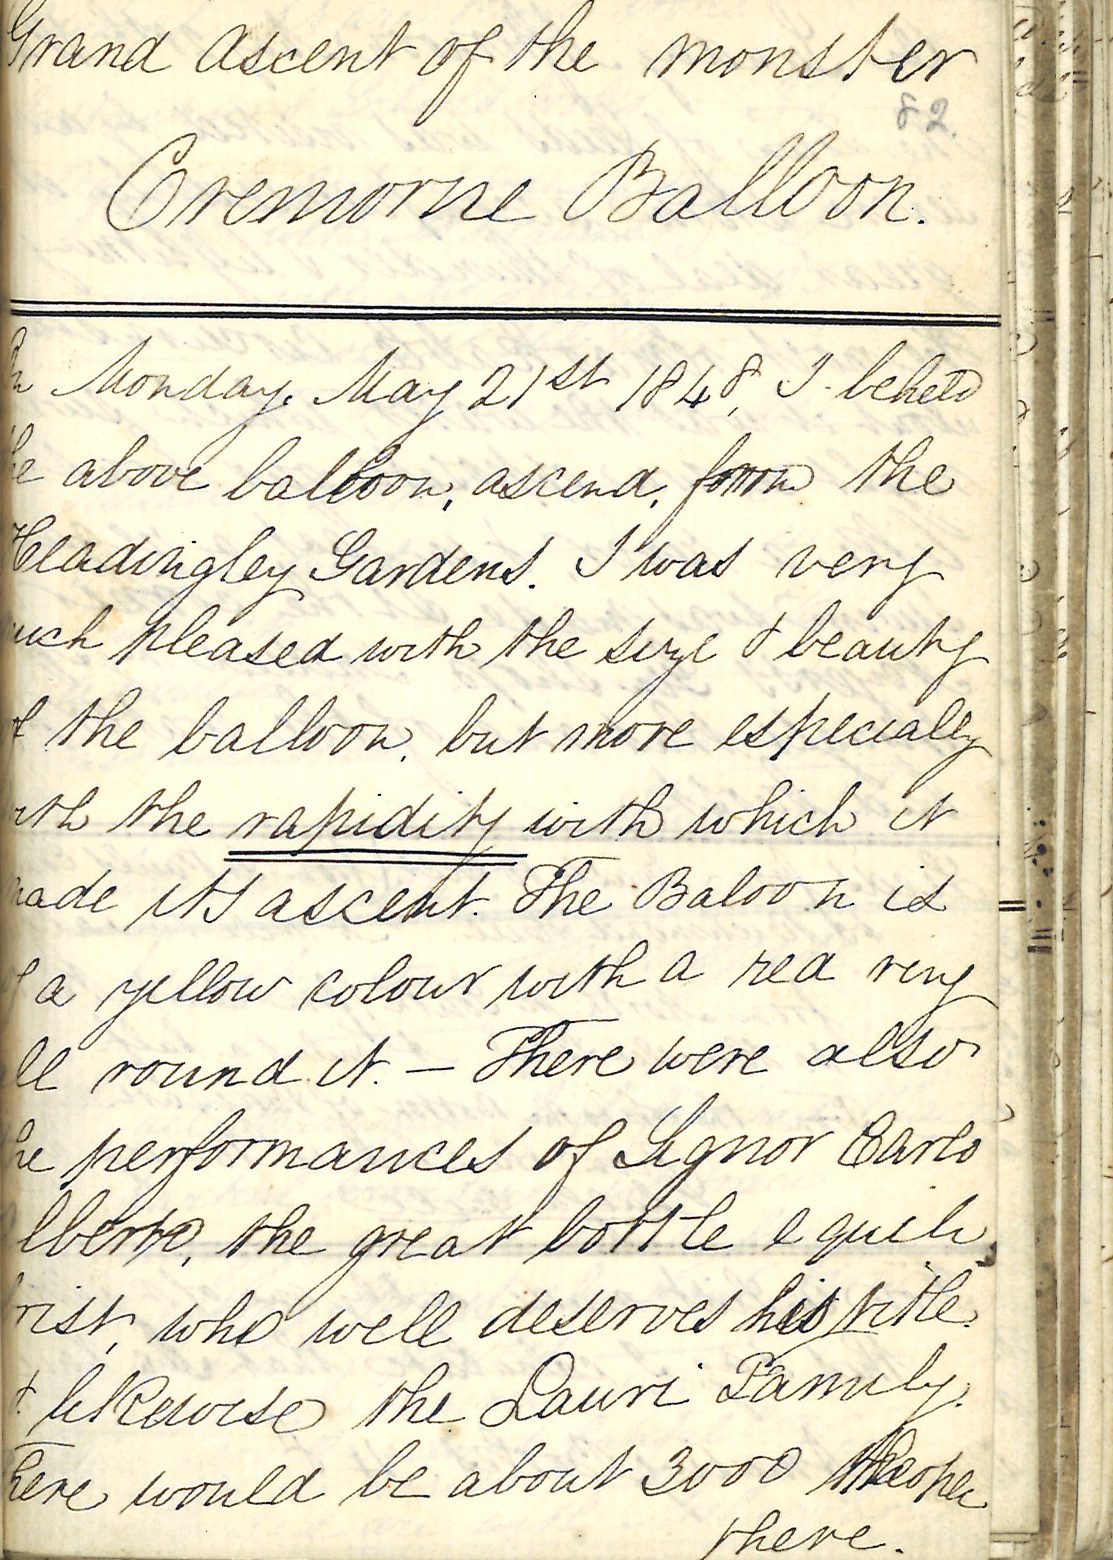 Grand Ascent of the monster
82.
Cremorne Balloon.
On Monday, May 21st 1848, I beheld
the above balloon, ascend, from the
Headingley Gardens. I was very
much pleased with the size & beauty
of the balloon, but more especially
with the rapidity with which it
made its ascent. The Baloon is
of a yellow colour with a red ring
all round it. — There were also
the performances of Signor Carlo
Alberto, the great bottle equili
brist, who well deserves his title.
& likewise the Lauri Family.
There would be about 3000 People
there.